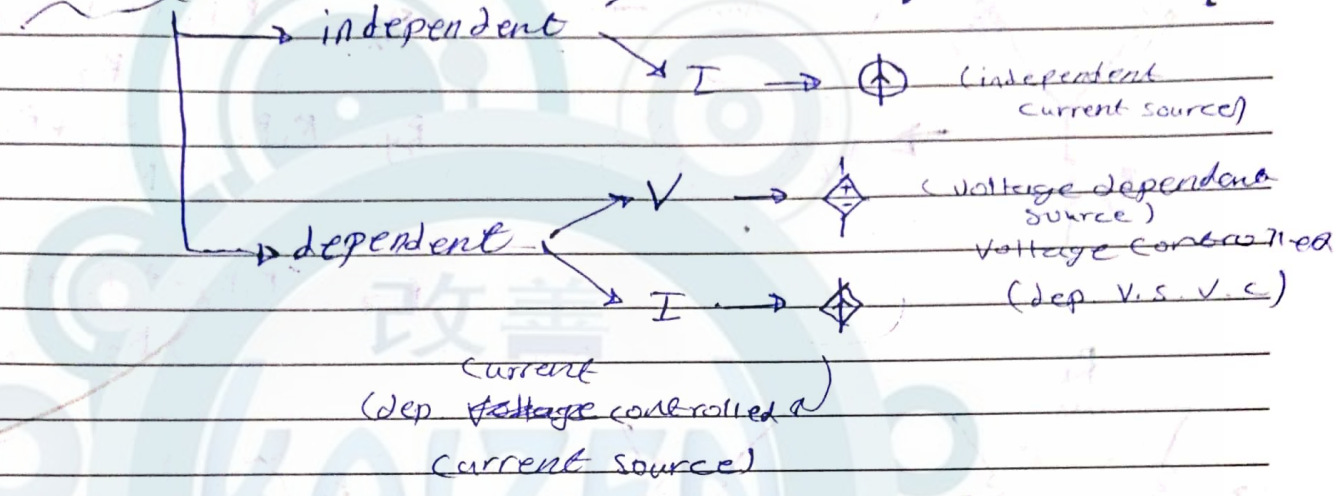 independent
I (independent
current source)
V (voltage dependent
source)
dependent voltage controlled
I (dep. V.S.V.C)
改善
current
(dep voltage controlled
current source)
KAIZEN